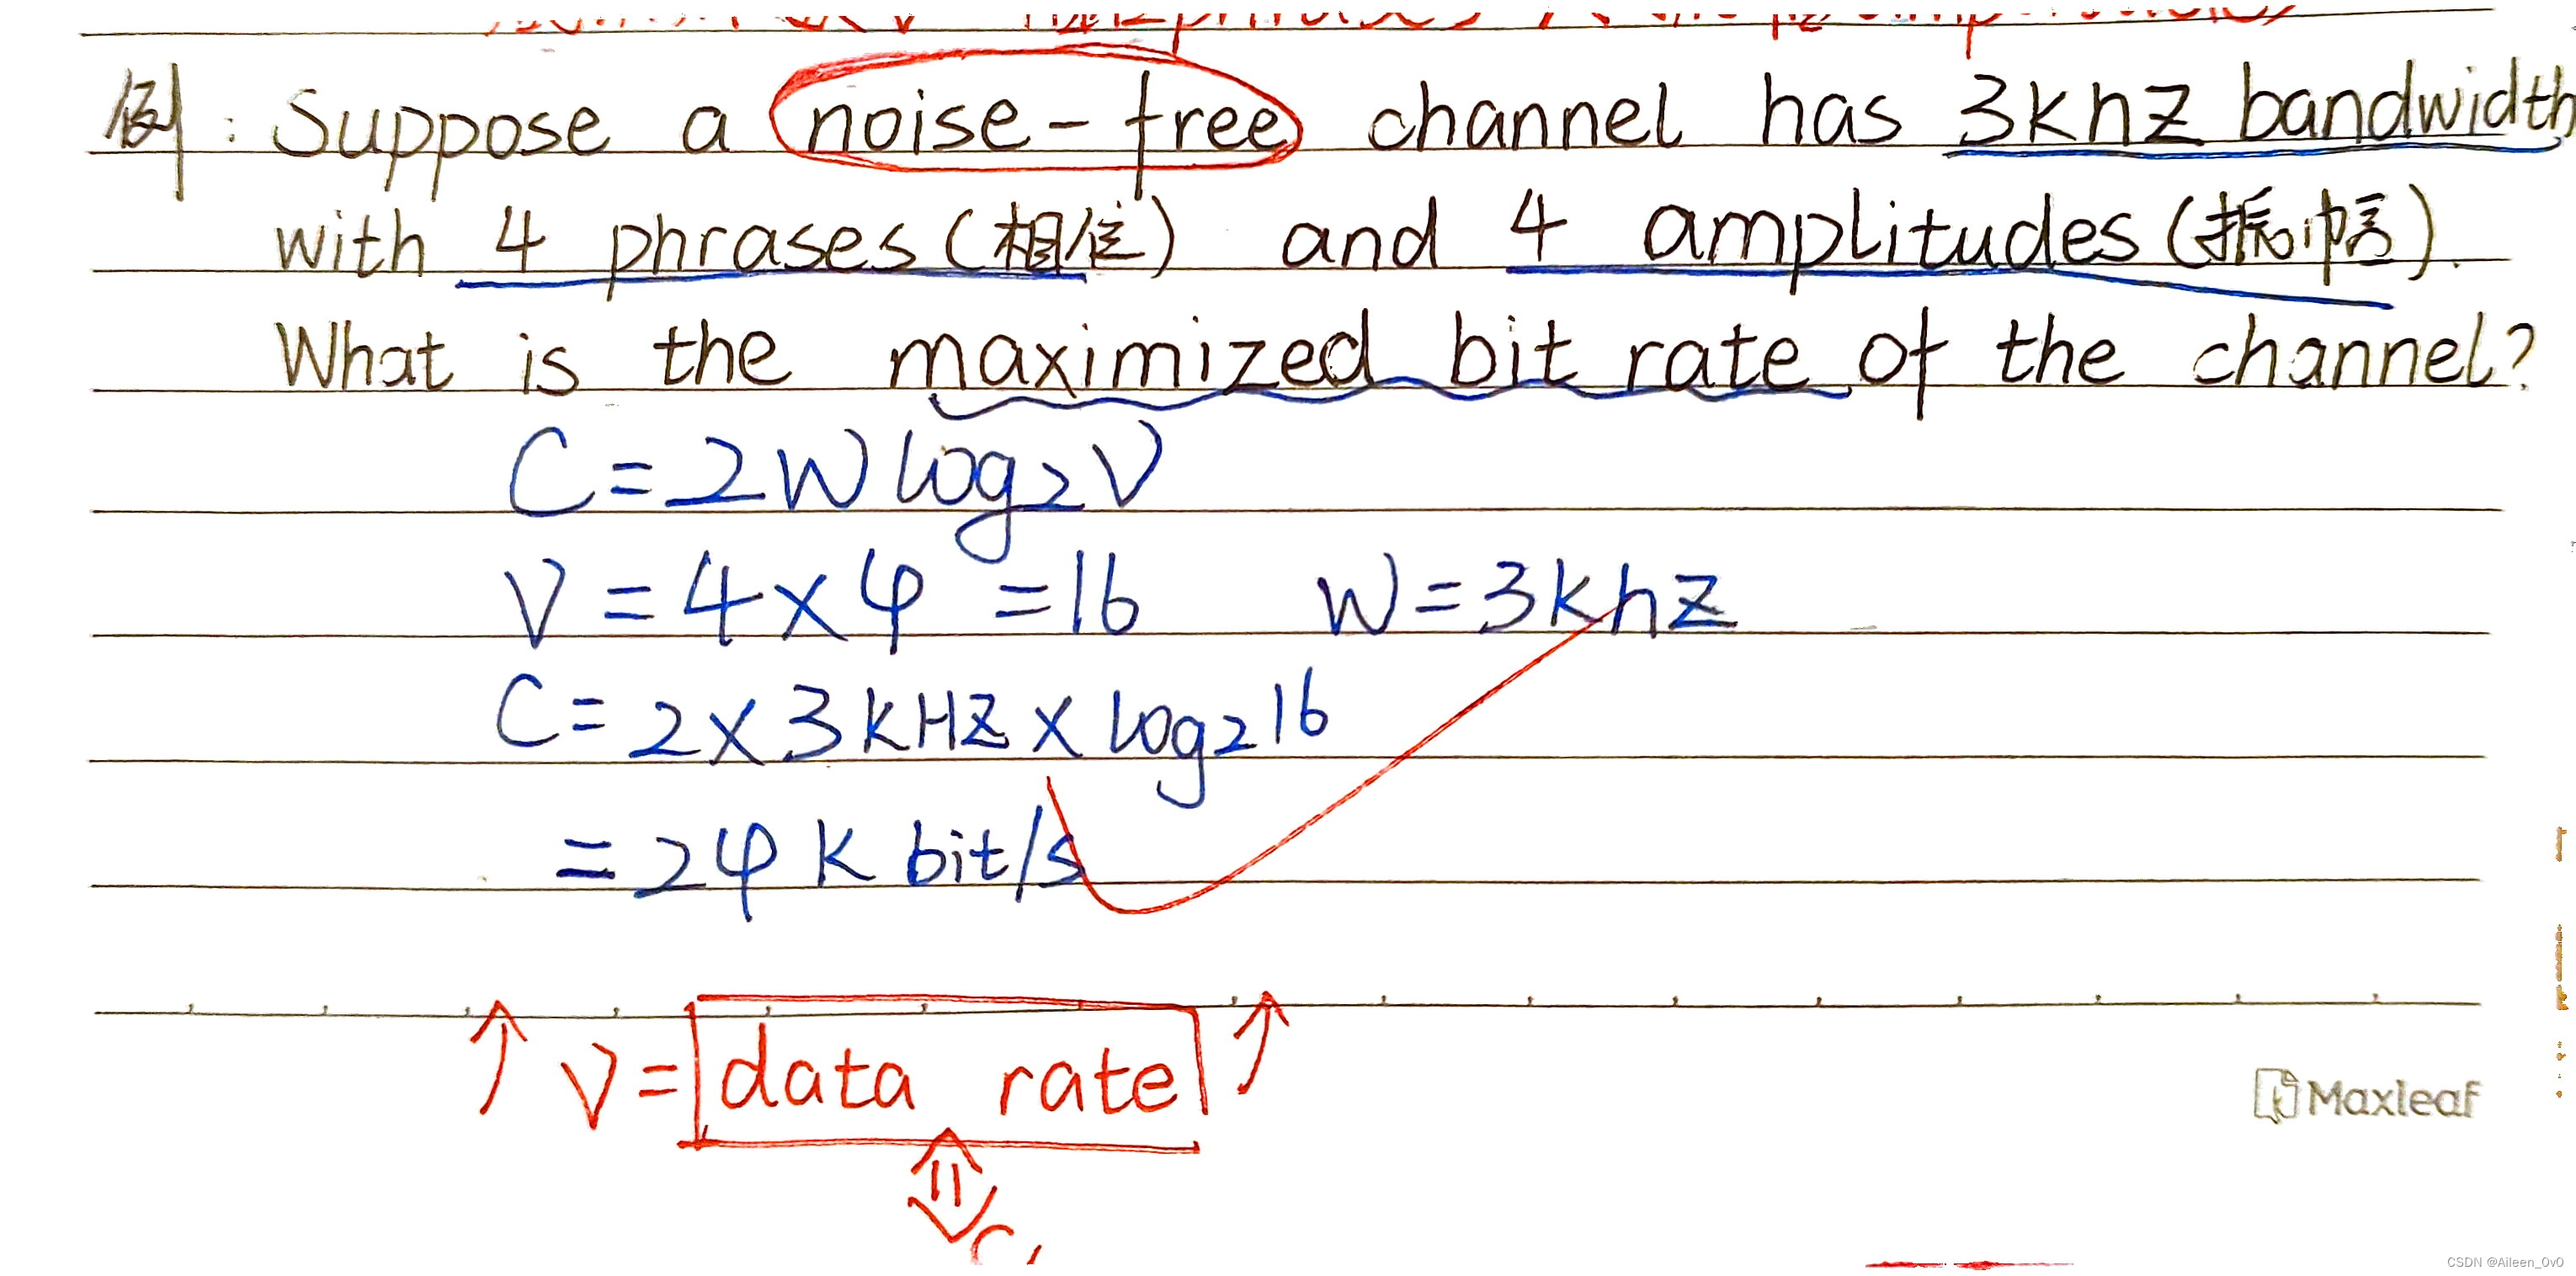 例: Suppose a noise-free channel has 3khz bandwidth
with 4 phrases(相位) and 4 amplitudes(振幅).
What is the maximized bit rate of the channel?
C=2Wlog₂V
V=4×4=16 W=3khz
C=2×3kHz×log₂16
=24k bit/s
↑ V=data rate ↑
Maxleaf
CSDN @Aileen_0v0